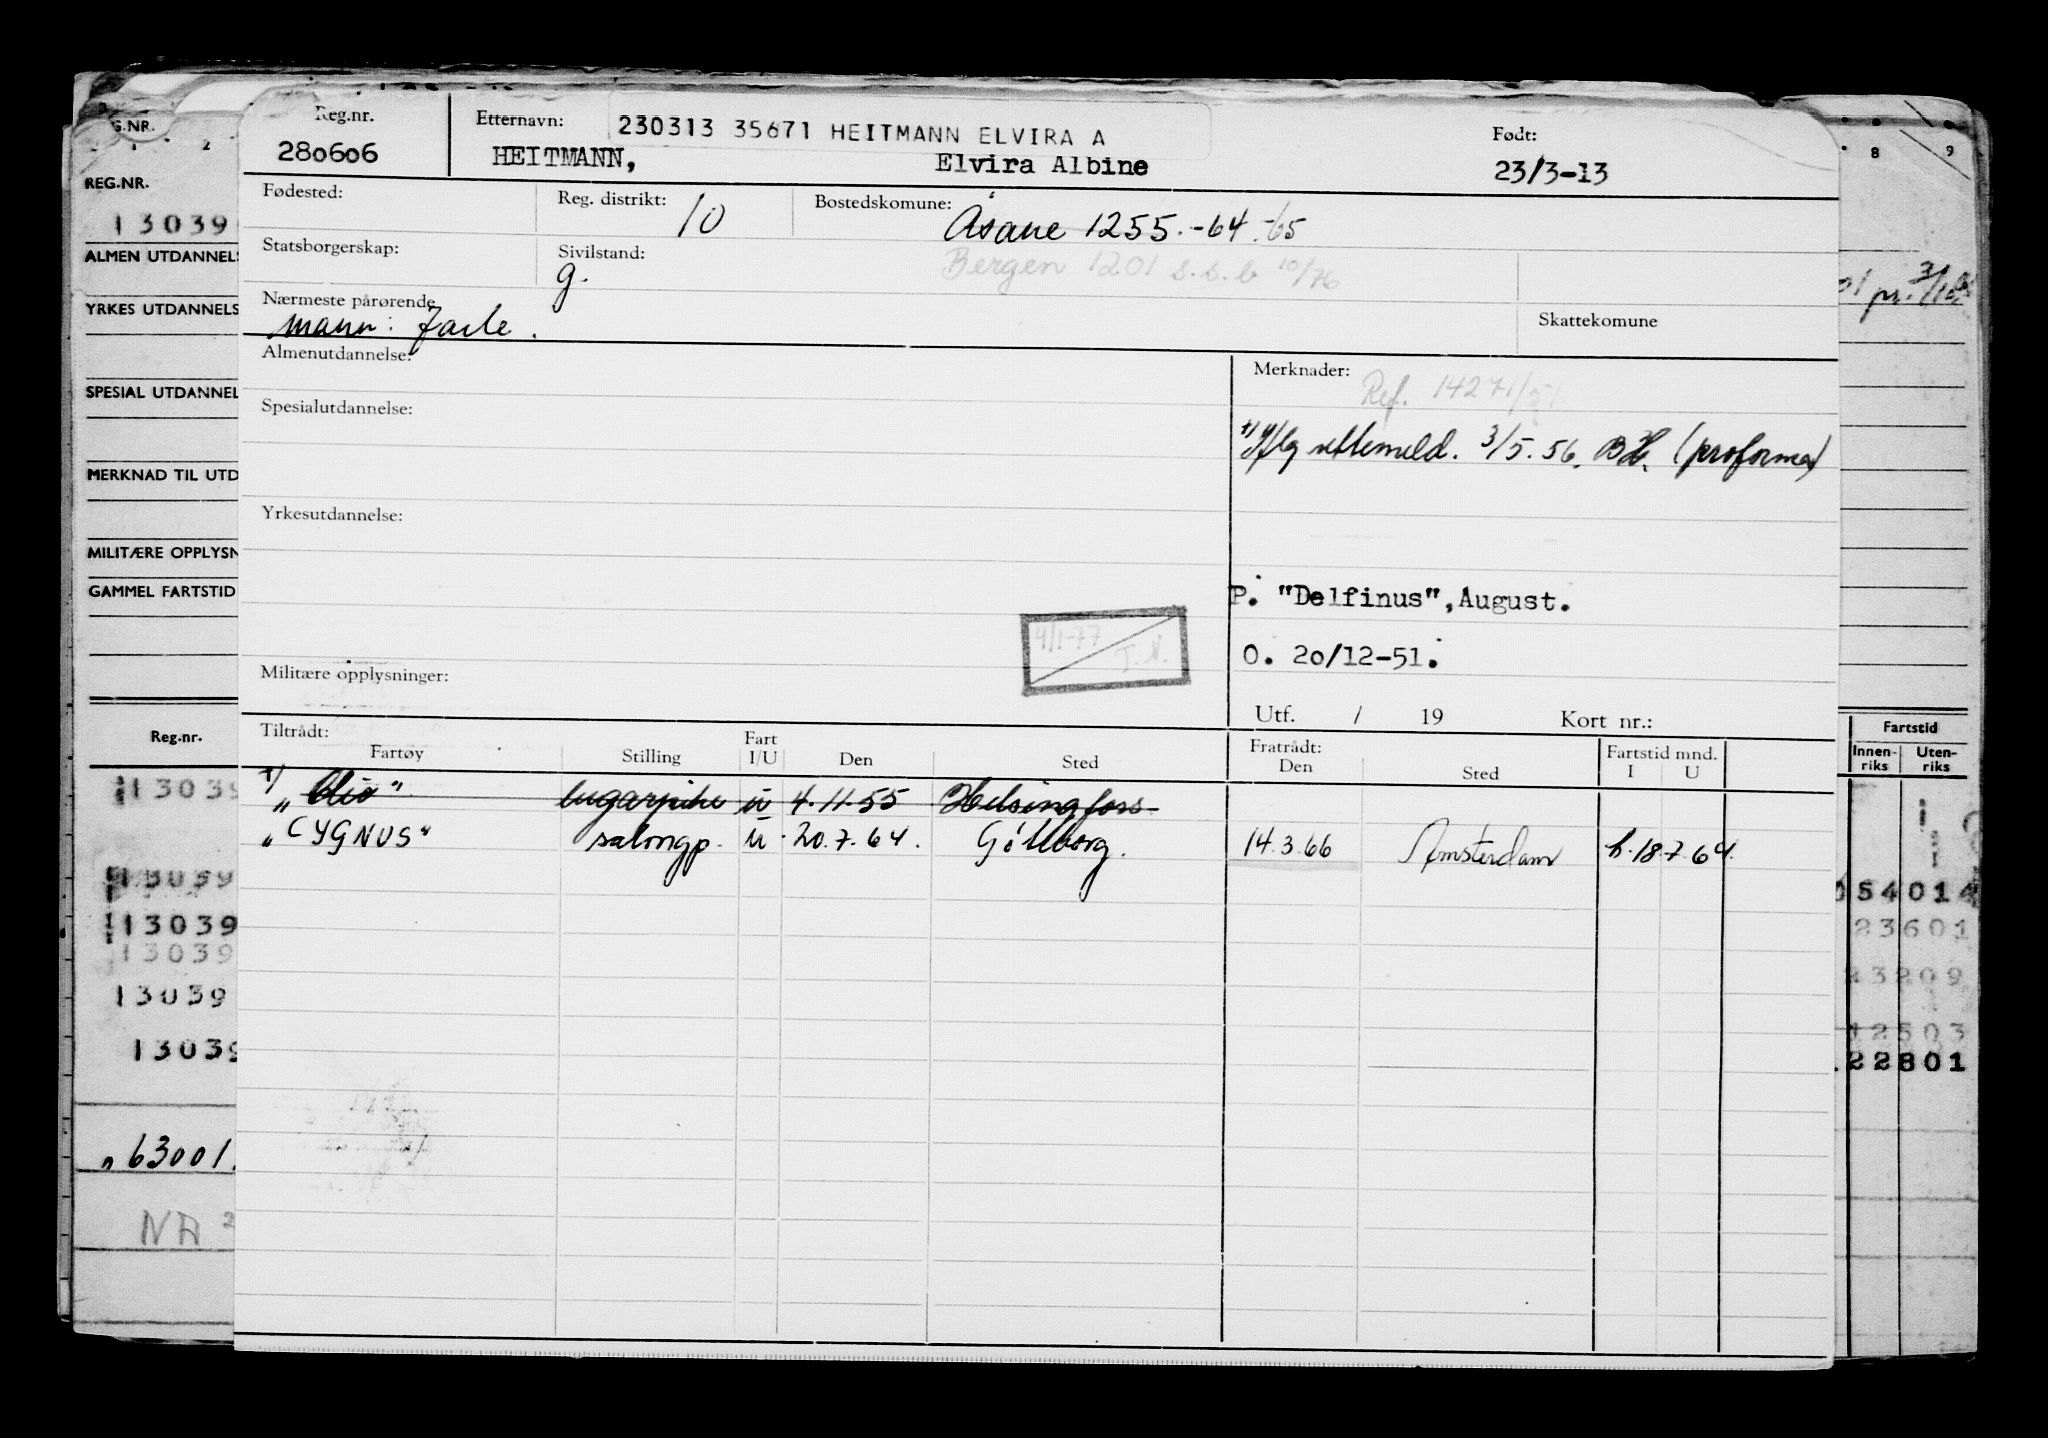 Reg.nr.
280606
Etternavn:
230313 35671 HEITMANN ELVIRA A
HEITMANN, Elvira Albine
Født:
23/3-13
Fødested:
Reg. distrikt: 10
Bostedskomune: Åsane 1255.-64.-65
Bergen 1201 s.s.b 10/76
Statsborgerskap:
Sivilstand: g.
Nærmeste pårørende
mann: Jarle.
Skattekomune
Almenutdannelse:
Spesialutdannelse:
Yrkesutdannelse:
Militære opplysninger:
4/1-77
Merknader:
Ref. 14271/51
3/5.56. (proforma)
P. "Delfinus", August.
O. 20/12-51.
Utf. / 19 Kort nr.:
Tiltrådt: Fratrådt:
Fartøy Stilling Fart I/U Den Sted Den Sted Fartstid mnd. I U
+/ "Clio" lugarpike u 4.11.55 Helsingfors
"CYGNUS" salongp. u 20.7.64. Gøteborg. 14.3.66 Amsterdam h.18.7.64.
G.NR.
2
REG.NR.
13039
ALMEN UTDANNELS
YRKES UTDANNELS
SPESIAL UTDANNEL
MERKNAD TIL UTD
MILITÆRE OPPLYSN
GAMMEL FARTSTID
Reg.nr.
13039
13039
13039
13039
13039
13039
63001
NA
8 9
Fartstid
Innen-riks Uten-riks
54014
23601
23209
12503
22801